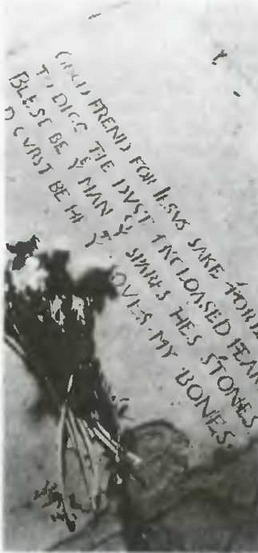 GOOD FREND FOR IESVS SAKE FORB
TO DIGG THE DVST ENCLOASED HEAR
BLESE BE Yͤ MAN Yͭ SPARES THES STONES
D CVRST BE HE Yͭ MOVES MY BONES.